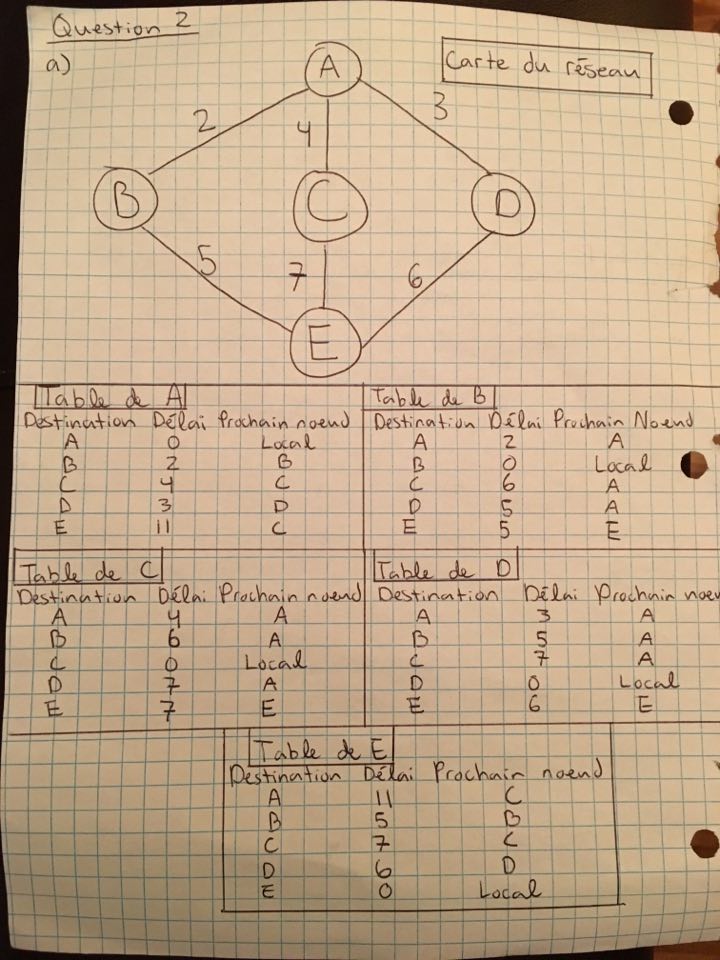 Question 2
a)
Carte du réseau
A
2
4
3
B
C
D
5
7
6
E
Table de A
Destination Délai Prochain noend
A 0 Local
B 2 B
C 4 C
D 3 D
E 11 C
Table de B
Destination Délai Prochain Noend
A 2 A
B 0 Local
C 6 A
D 5 A
E 5 E
Table de C
Destination Délai Prochain noend
A 4 A
B 6 A
C 0 Local
D 7 A
E 7 E
Table de D
Destination Délai Prochain noeu
A 3 A
B 5 A
C 7 A
D 0 Local
E 6 E
Table de E
Destination Délai Prochain noend
A 11 C
B 5 B
C 7 C
D 6 D
E 0 Local